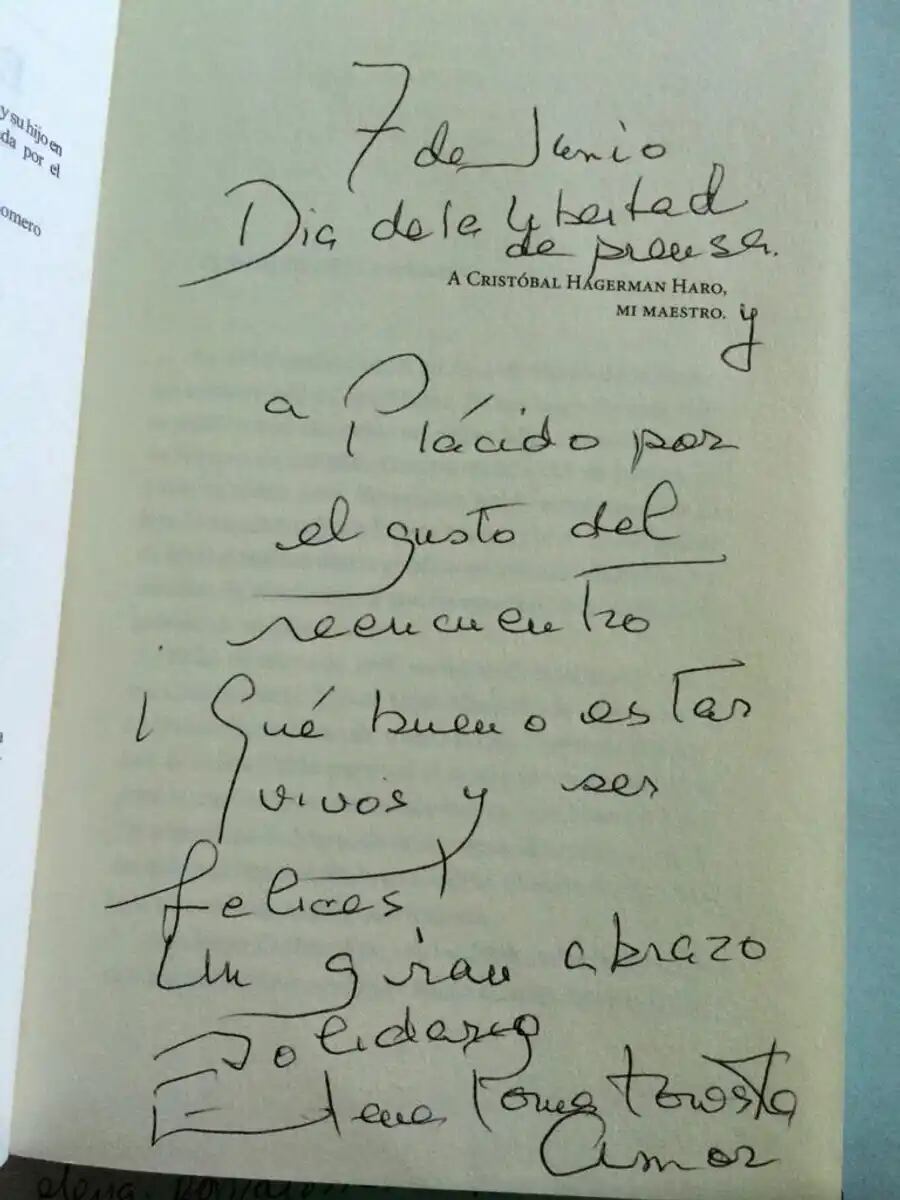 y su hijo en
da por el
omero
7 de Junio
Dia de la Libertad
de prensa.
A CRISTÓBAL HAGERMAN HARO,
MI MAESTRO. y
a Plácido por
el gusto del
reencuentro
¡Qué bueno estar
vivos y ser
felices!
Un gran abrazo
solidario
Elena Poniatowska
Amor